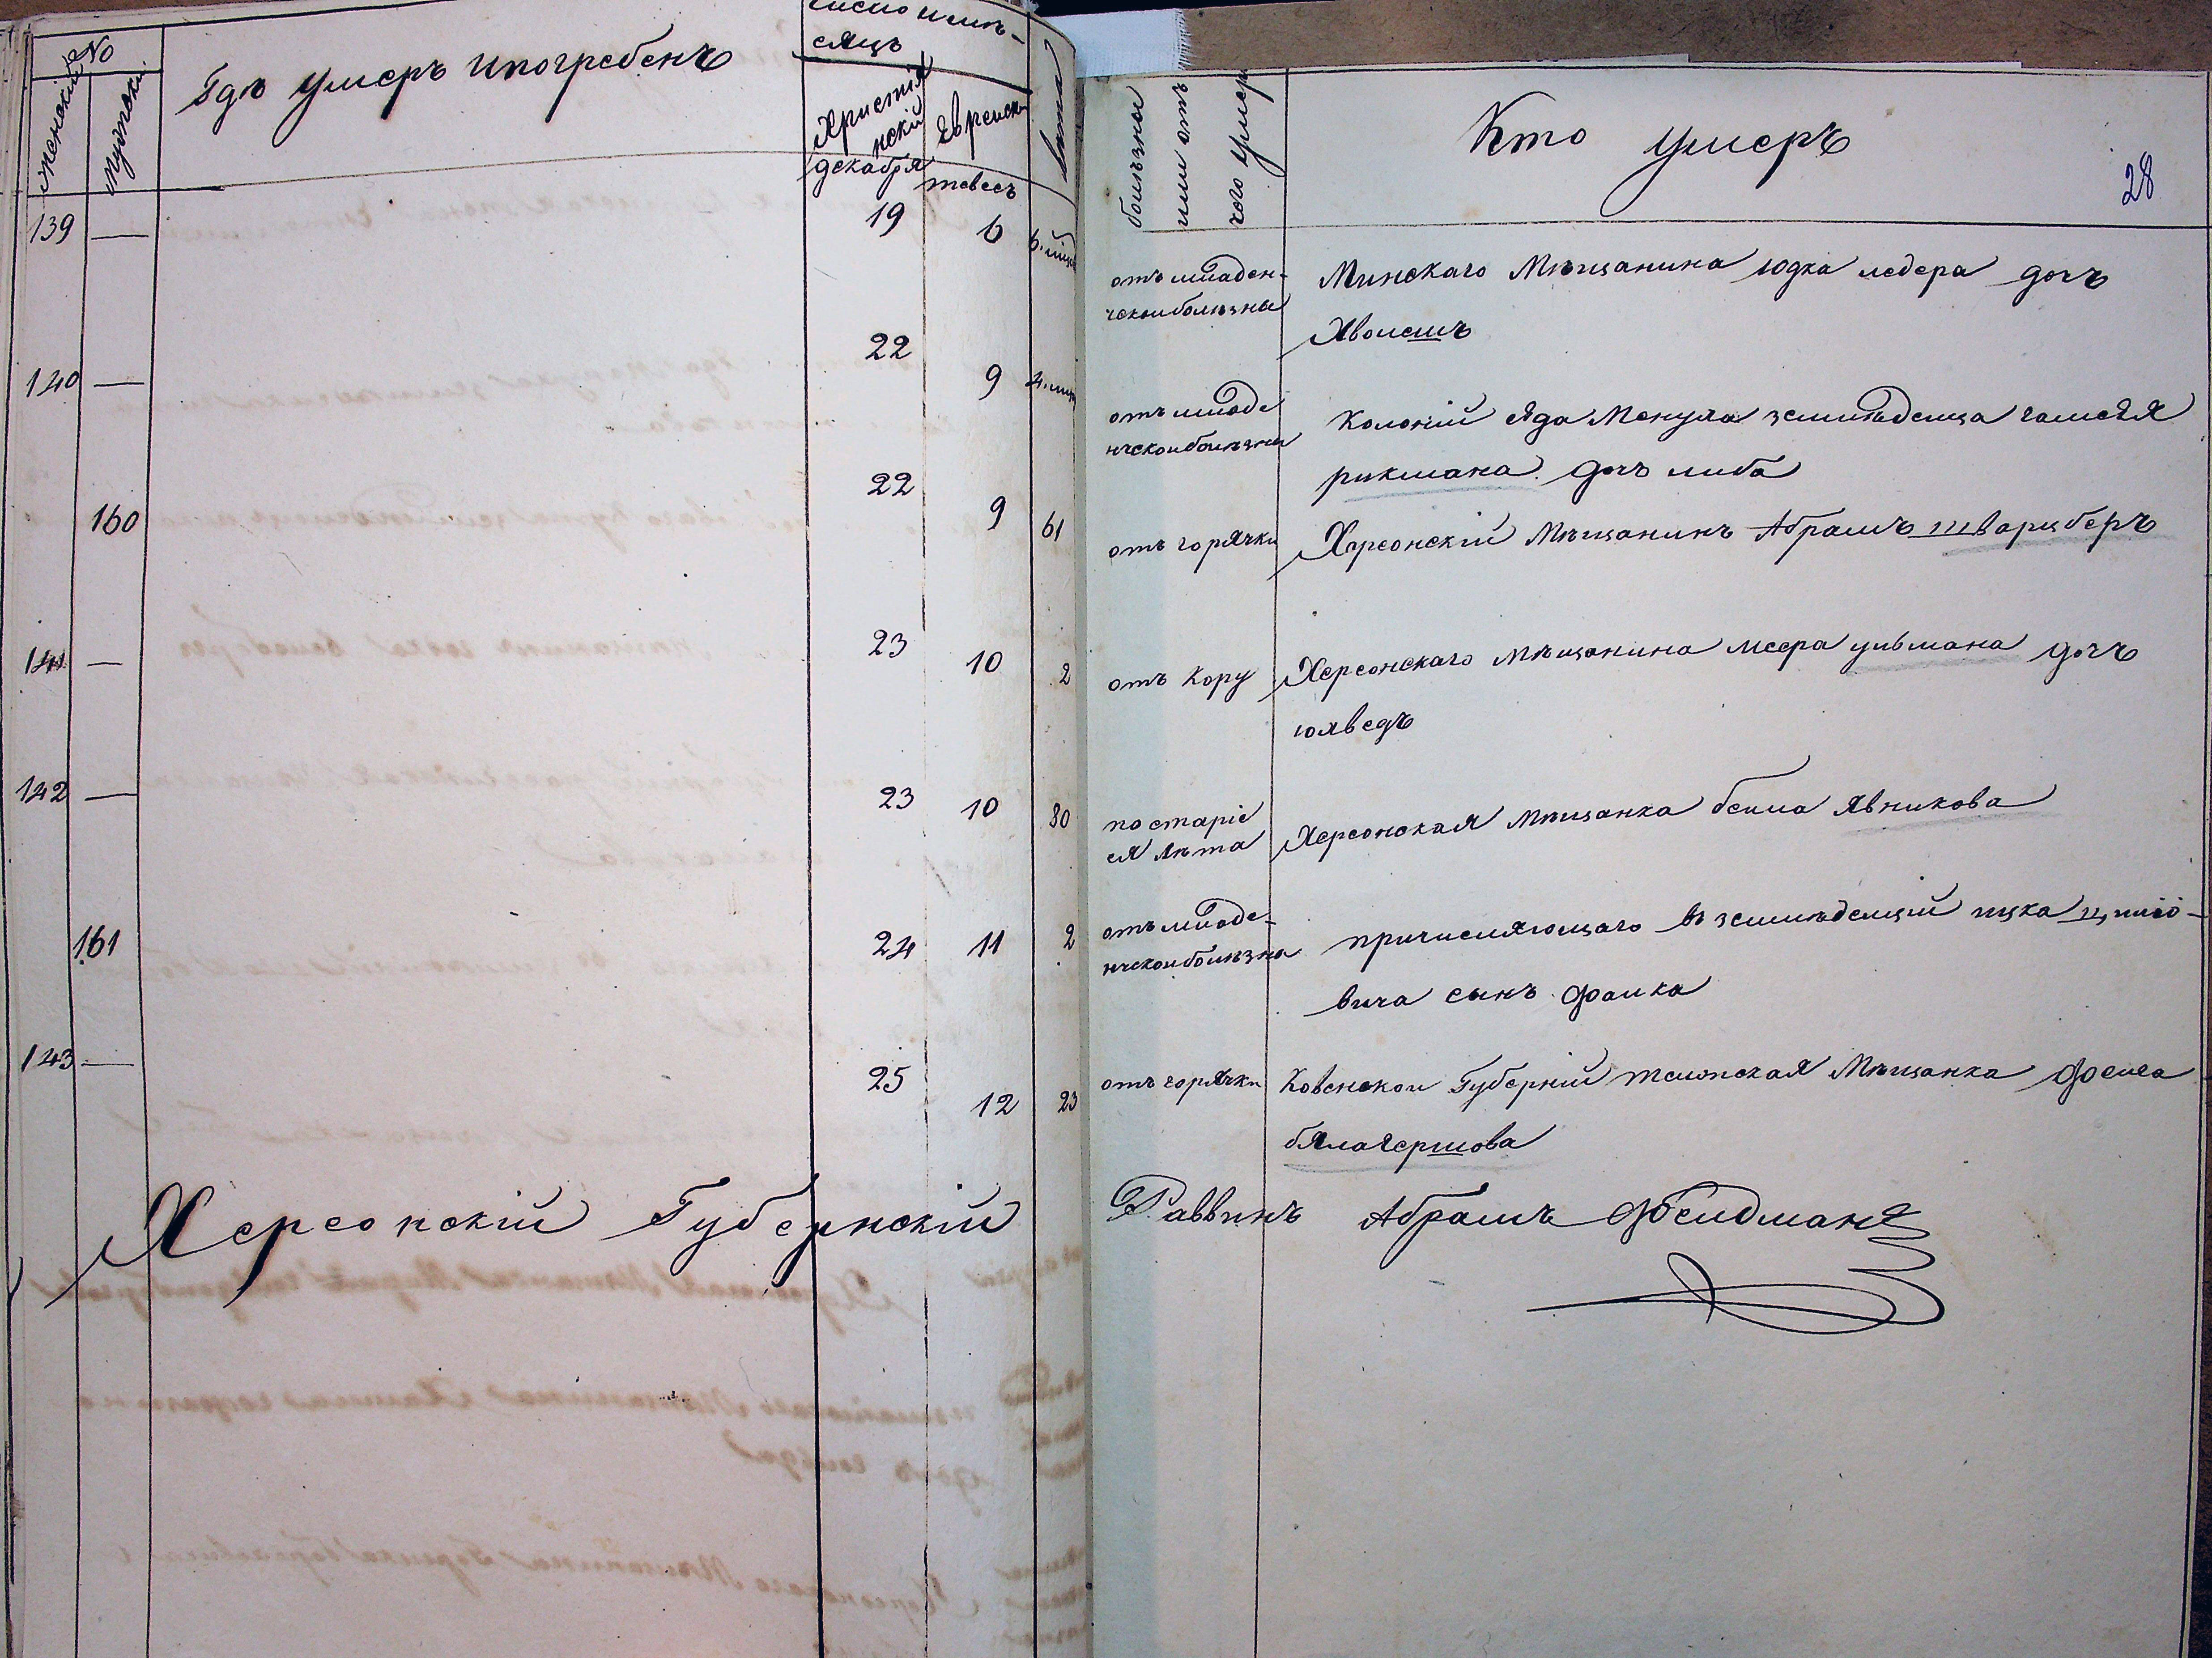 No
женскій
мужескій
Гдѣ умеръ и погребенъ
число и мѣ-
сяцъ
Христіа
нскій
Еврейск
декабря
тевесъ
лѣта
болѣзны
или отъ
чого умеръ
Кто умеръ
28
139 — 19 6 6. мѣс
отъ младен-
ческой болѣзны
Минскаго Мѣщанина юдка ледера дочъ
140 — 22 9 4. мѣс
отъ младе
нческой болѣзны
Колоній сяда Менуха земледелца
рикмана дочъ либа
160 22 9 61
отъ горячки
Херсонскій Мѣщанинъ Абрамъ шварцберъ
141 — 23 10 2
отъ Кору
Херсонскаго мѣщанина меера ульмана дочъ
юхведъ
142 — 23 10 80
по старіе
ея лѣта
Херсонская мѣщанка бейла Явникова
161 24 11 2
отъ младе-
нческой болѣзны
причисляющаго въ земледелцій ицка
вича сынъ фалка
143 — 25 12 23
отъ горячки
Ковенской Губерній телшская Мѣщанка фейга
Херсонскій Губернскій Раввинъ Абрамъ Фелдманъ